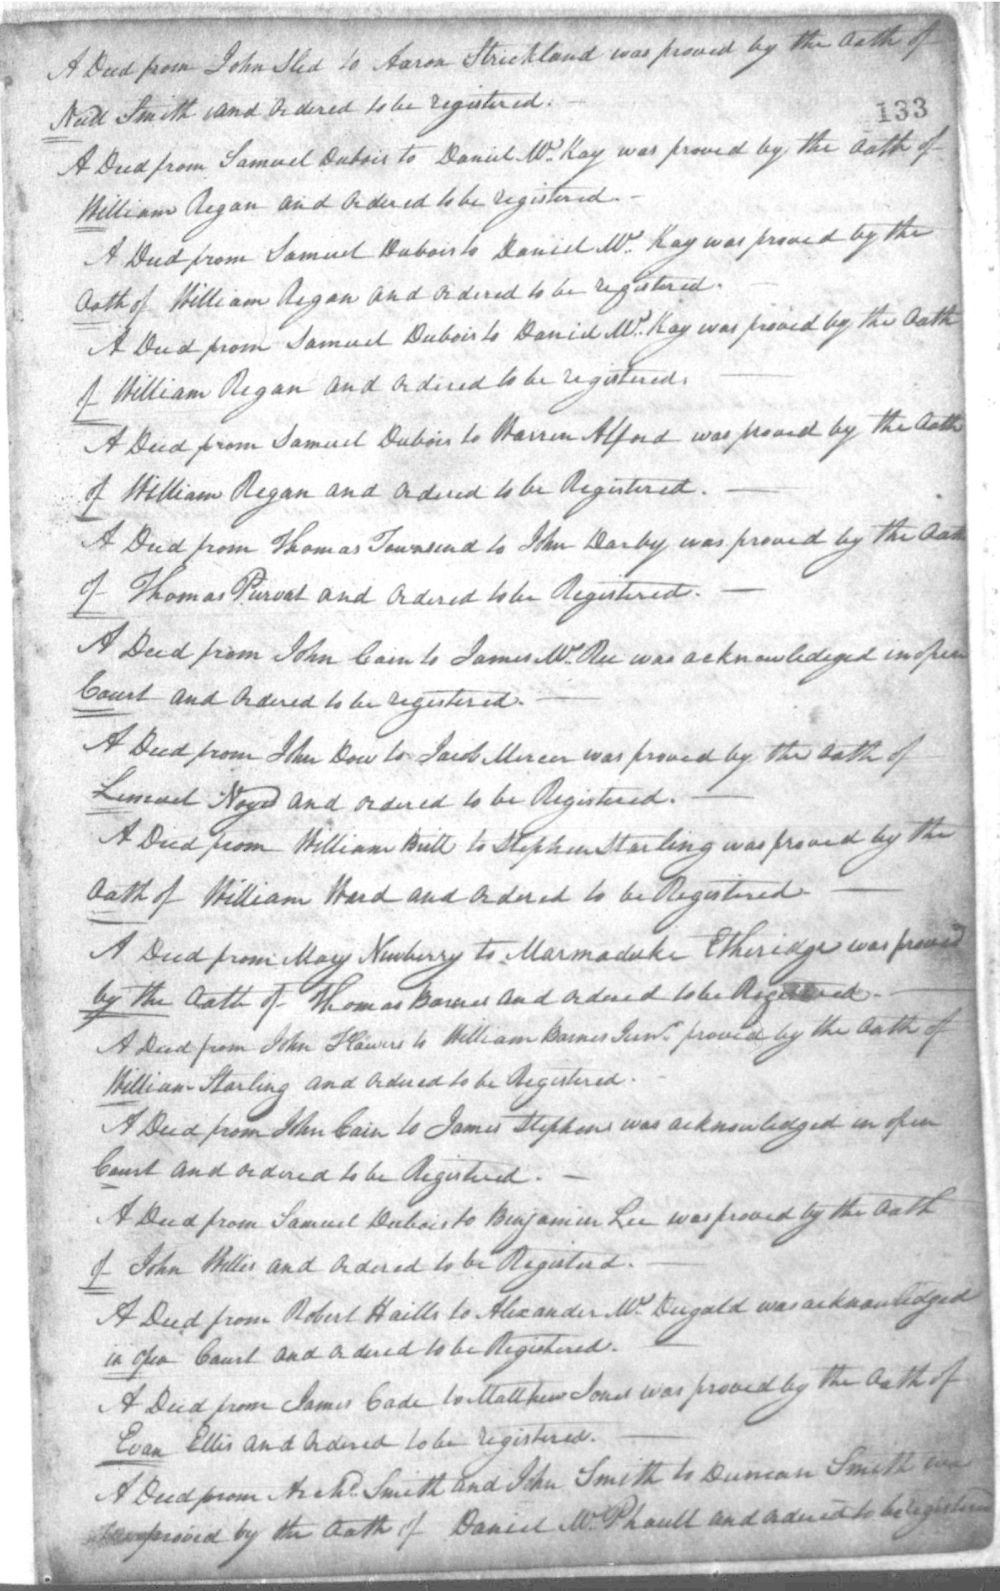 A Deed from John Sled to Aaron Strickland was proved by the Oath of
Need Smith and ordered to be registered.
133
A Deed from Samuel Dubois to Daniel Mc.Kay was proved by the Oath of
William Regan and ordered to be registered.
A Deed from Samuel Dubois to Daniel Mc. Kay was proved by the
Oath of William Regan and ordered to be registered.
A Deed from Samuel Dubois to Daniel Mc.Kay was proved by the Oath
of William Regan and ordered to be registered.
A Deed from Samuel Dubois to Warren Alford was proved by the Oath
of William Regan and ordered to be Registered.
A Deed from Thomas Townsend to John Darby was proved by the Oath
of Thomas Purvat and ordered to be Registered.
A Deed from John Cain to James Mc.Ree was acknowledged in open
Court and ordered to be registered.
A Deed from John Dow to Jacob Mercer was proved by the Oath of
Lemuel and ordered to be Registered.
A Deed from William Britt to Stephen Starling was proved by the
Oath of William Ward and ordered to be Registered
A Deed from Mary Newberry to Marmaduke Etheridge was proved
by the Oath of Thomas Barnes and ordered to be Registered.
A Deed from John Flowers to William Barnes Junr. proved by the Oath of
William Starling and ordered to be Registered.
A Deed from John Cain to James Stephens was acknowledged in open
Court and ordered to be Registered.
A Deed from Samuel Dubois to Benjamin Lee was proved by the Oath
of John Willis and ordered to be Registerd.
A Deed from Robert Haills to Alexander Mc. Dugald was acknowledged
in open Court and ordered to be Registered.
A Deed from James Cade to Matthew Jones was proved by the Oath of
Evan Ellis and ordered to be registered.
A Deed from Archd. Smith and John Smith to Duncan Smith was
proved by the Oath of Daniel Mc.Phaull and ordered to be registered